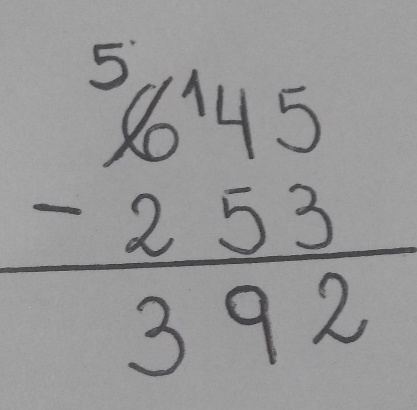 5
6 ¹45
- 253
392